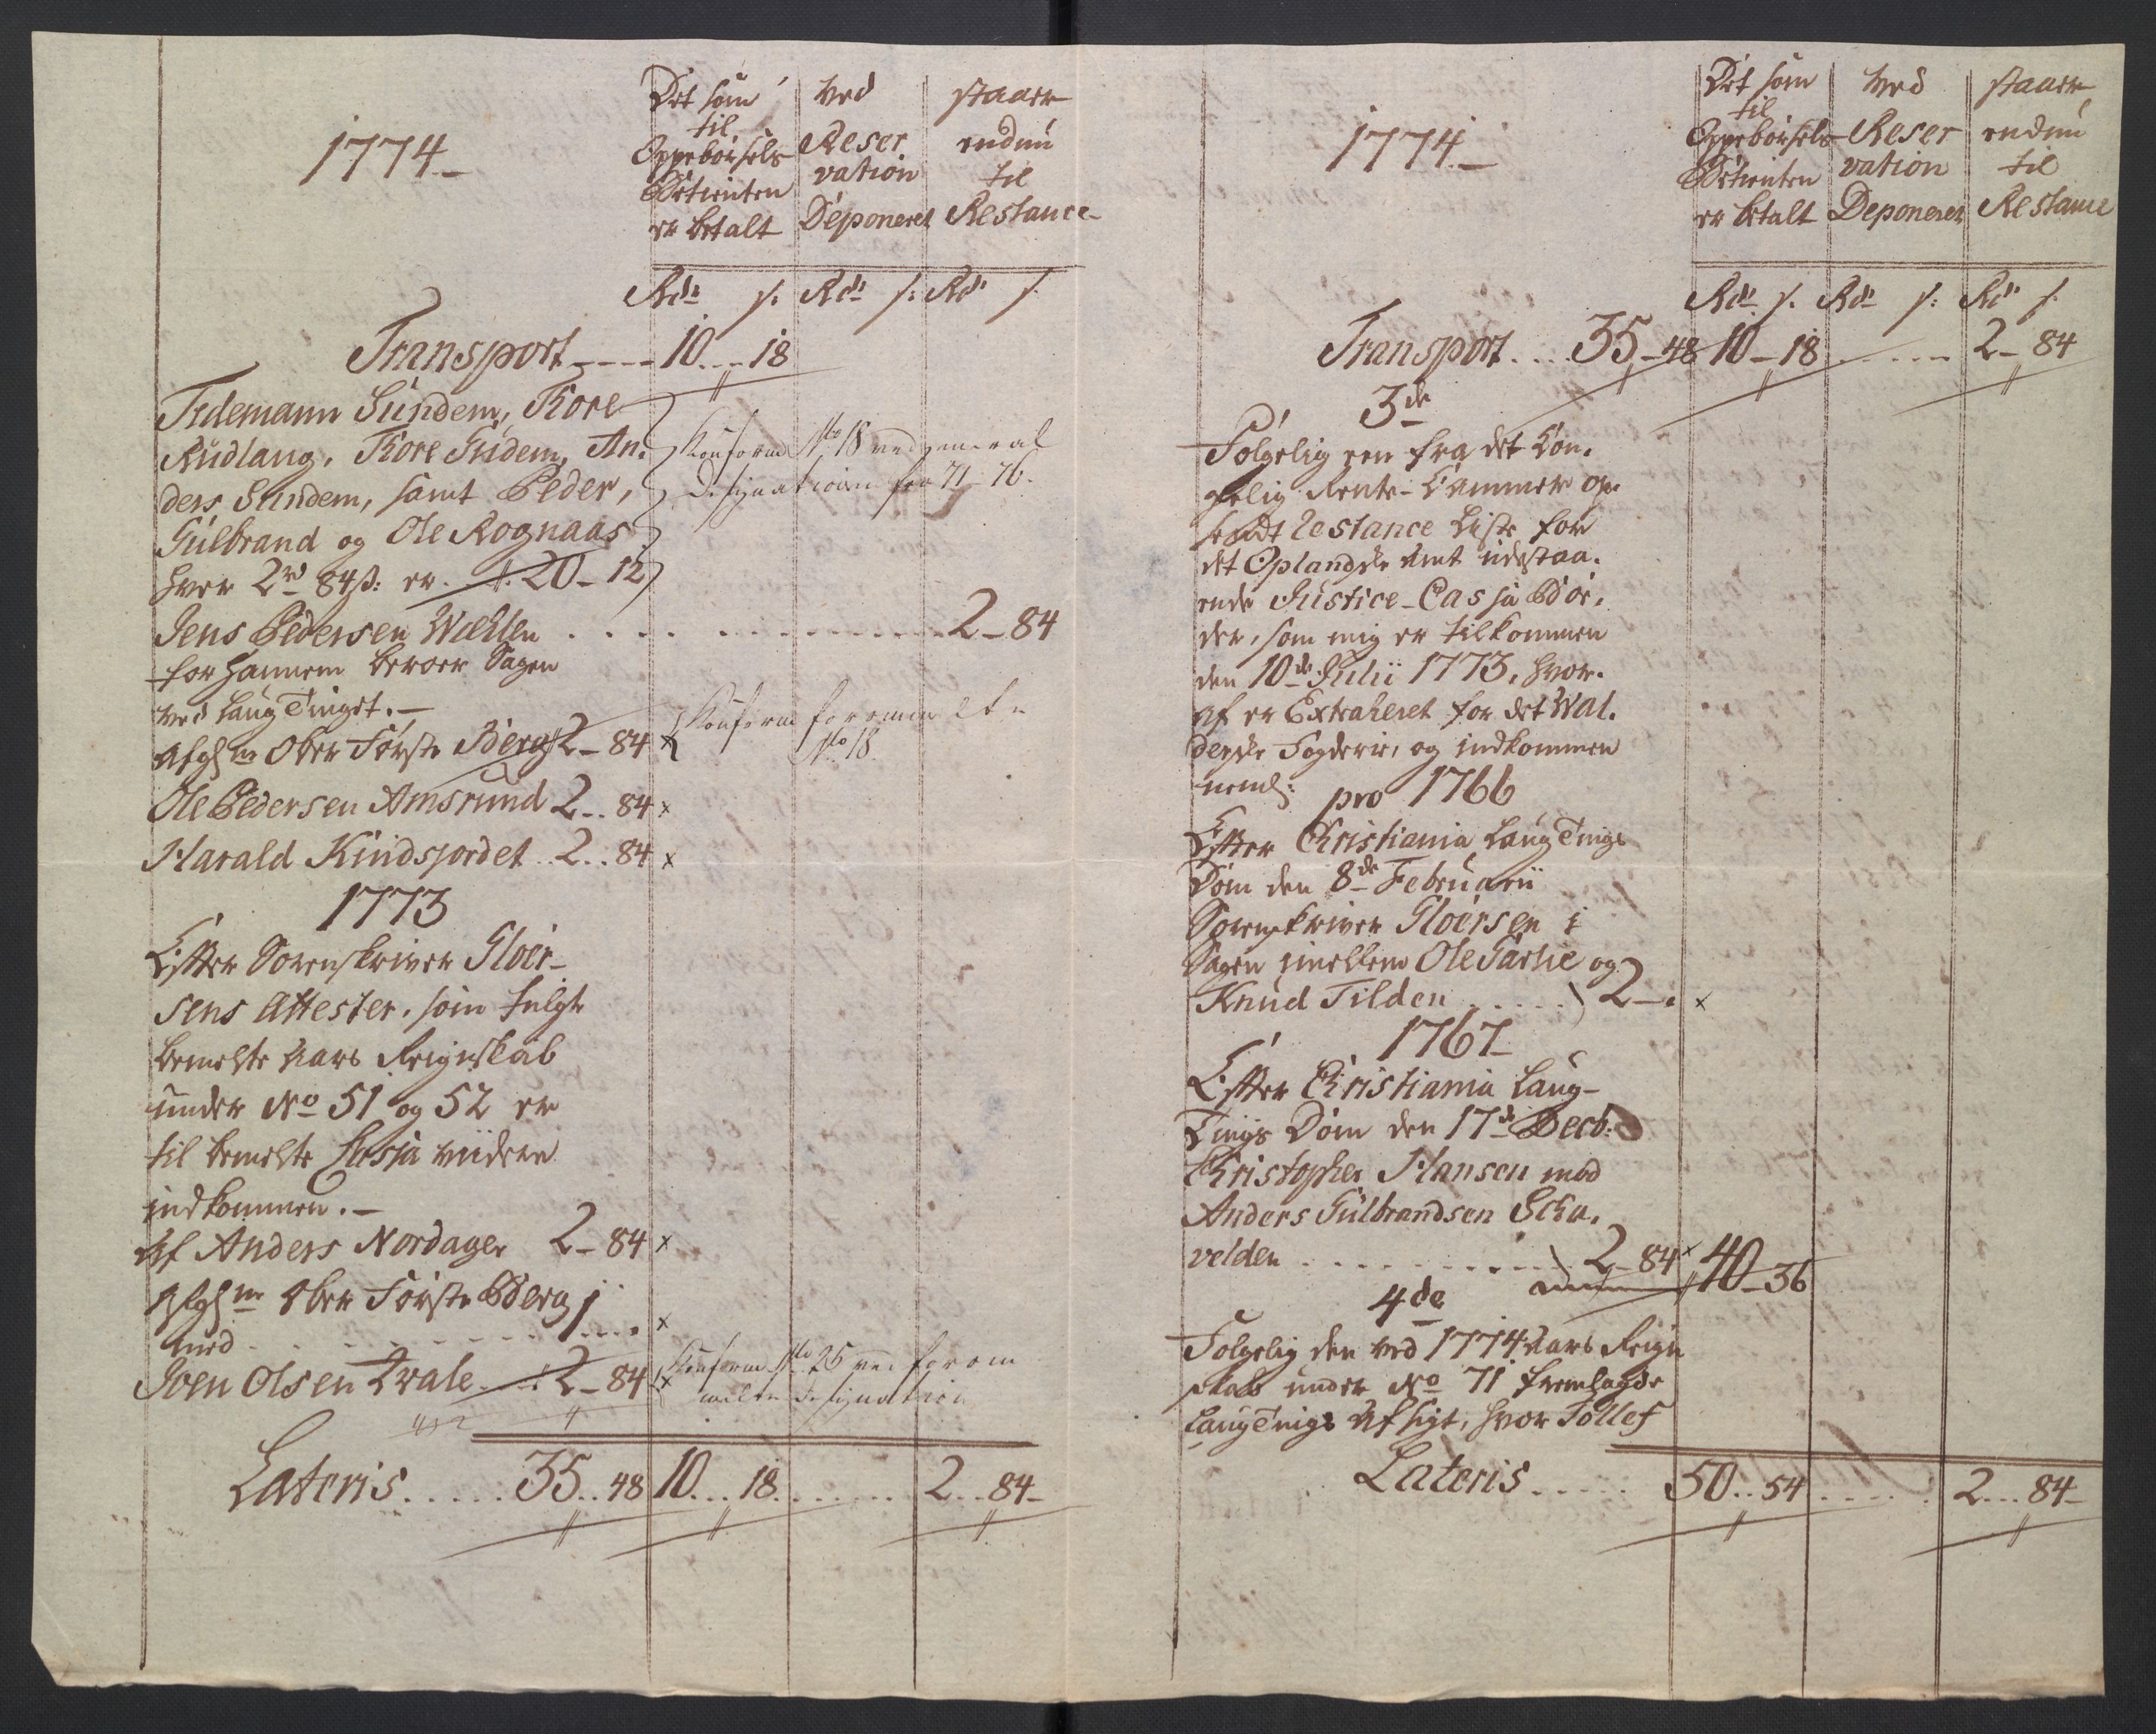 1774
Det som
til
Oppebørsels
Betienten
er betalt
Ved
Reser
vation
Deponeret
staaer
endnu
til
Restance
Rdr s: Rdr s: Rdr s.
Transport 10 18
Tidemann Sundem, Tore
Rudlang, Tore Sudem, An:
ders Sundem, samt Peder,
Gulbrand og Ole Rognaas
hver 2 rd 84 s: er 20 - 12
Conform No 18 ved general
Designationen fra 71 - 76.
Jens Pedersen Wæhlen 2 - 84
for hannem beroer Sagen
ved Laug Tinget. -
Afg: Ober Førster Bierg 2 - 84 x
Conform foromm
No 18
Ole Pedersen Amsrund 2 84 x
Harald Kindsjordet 2 84 x
1773
Efter Sorenskriver Gloer-
sens Attester, som fulgte
bemelte Aars Regnskab
under No 51 og 52 er
til bemelte Cassa viidere
indkommen. -
Af Anders Nordager 2 - 84 x
Afg: Ober Førster Berg
med 1 x
Joen Olsen Qvale 2 - 84 x
Conform No 25 ved forom
melte Designation
Lateris 35 48 10 18 2 84
1774
Det som
til
Oppebørsels
Betienten
er betalt
Ved
Reser
vation
Deponeret
staaer
endnu
til
Restance
Rdr s. Rdr s: Rdr s.
Transport 35 - 48 10 - 18 2 - 84
3de
Følgelig een fra det Kon.
gelig Rente-Cammer op.
sendt Restance Liste for
det Oplandske Amt udestaa.
ende Justice-Cassa Bøe.
der, som mig er tilkommen
den 10de Julii 1773, hvor.
af er Extraheret for det Wal.
derske Fogderie, og indkommen
neml:
pro 1766
Efter Christiania Laug Tings
Dom den 8de Februarii
Sorenskriver Gloersen i
Sagen imellem Ole Garlie og
Knud Tilden 2 - x
1767
Efter Christiania Laug-
Tings Dom den 17de Decb:
Christopher Hansen mod
Anders Gulbrandsen Scha.
velden 2 - 84 x 40 - 36
4de
Følgelig den ved 1774 Aars Regn
skab under No 71 fremlagde
Laug Tings Afsigt, hvor Tollef
Lateris 50 54 2 84